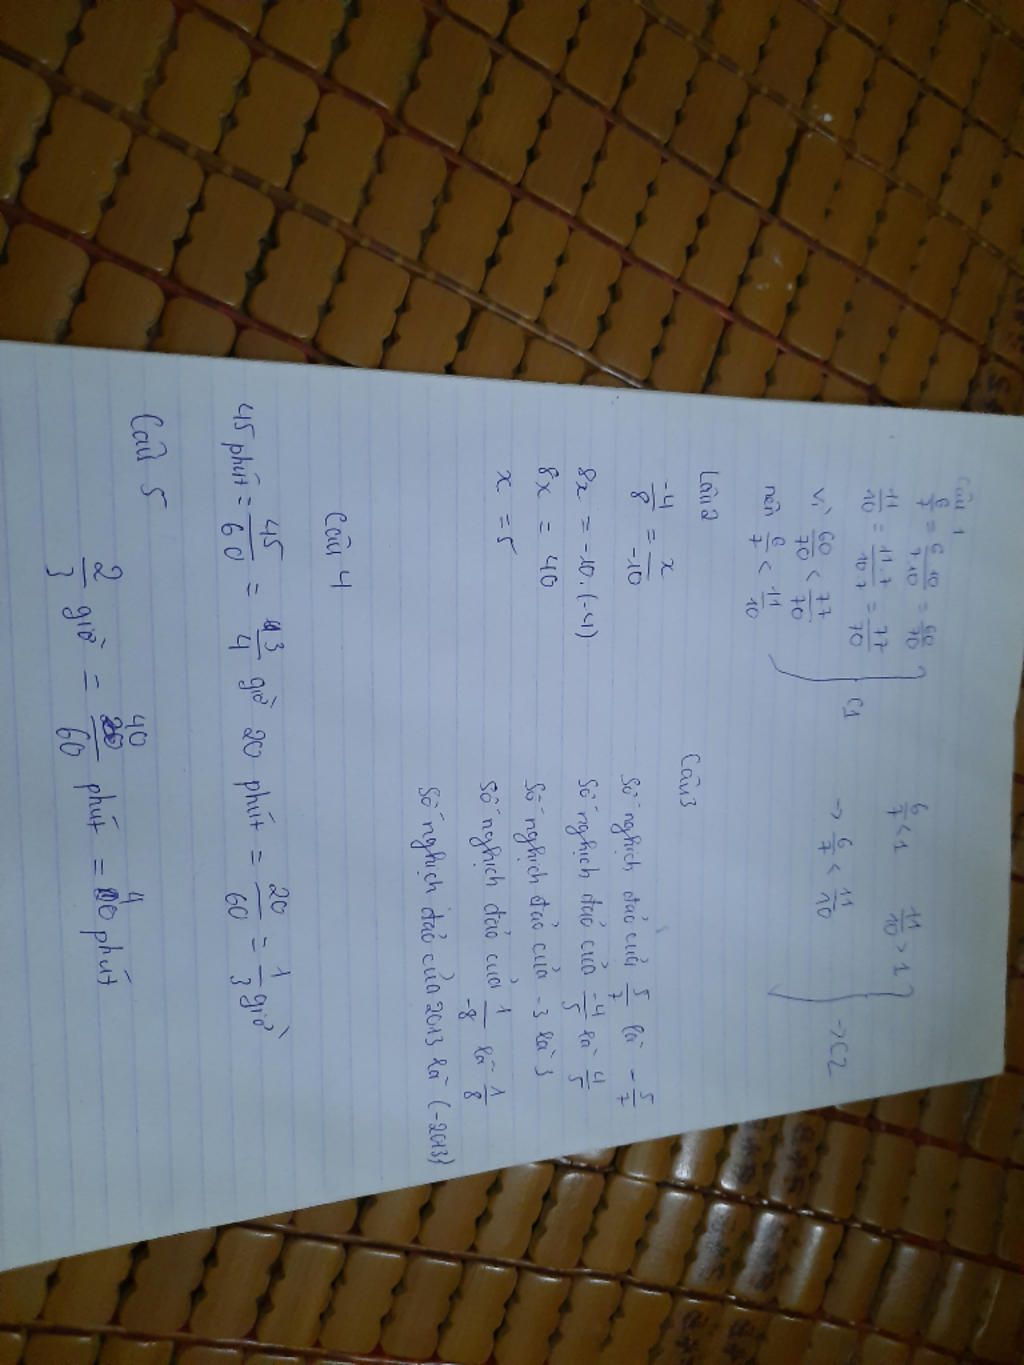 Câu 1
6/7 = 6.10/7.10 = 60/70
11/10 = 11.7/10.7 = 77/70
Vì 60/70 < 77/70
nên 6/7 < 11/10
C1
6/7 < 1 11/10 > 1
-> 6/7 < 11/10
-> C2
Câu 2
-4/8 = x/-10
8x = -10.(-4)
8x = 40
x = 5
Câu 3
Số nghịch đảo của 5/7 là -5/7
Số nghịch đảo của -4/5 là 4/5
Số nghịch đảo của -3 là 3
Số nghịch đảo của 1/-8 là 1/8
Số nghịch đảo của 2013 là (-2013)
Câu 4
45 phút = 45/60 = 3/4 giờ 20 phút = 20/60 = 1/3 giờ
Câu 5
2/3 giờ = 40/60 phút = 40 phút